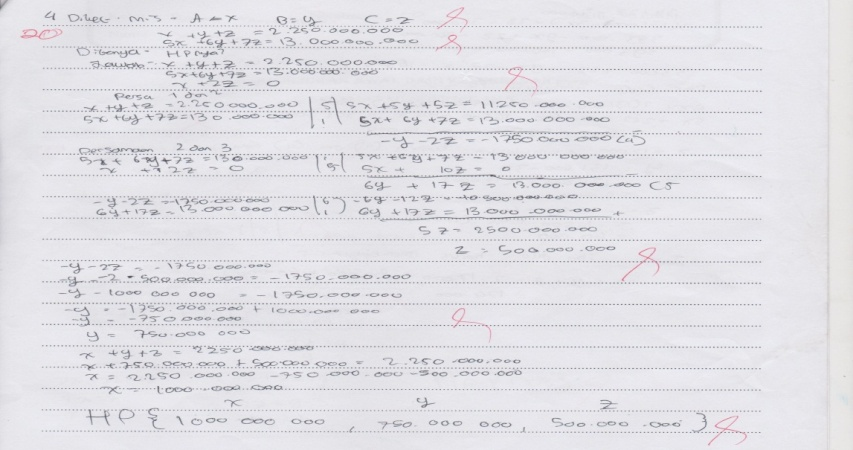 4 Diket. M.S = A = x B = y C = z
20
x + y + z = 2.250.000.000
5x + 6y + 7z = 13.000.000.000
Ditanya = HPnya?
Jawab = x + y + z = 2.250.000.000
5x + 6y + 7z = 13.000.000.000
x + 2z = 0
Persa 1 dan 2
x + y + z = 2.250.000.000 | 5 | 5x + 5y + 5z = 11250.000.000
5x + 6y + 7z = 130.000.000.000 | 1 | 5x + 6y + 7z = 13.000.000.000
-y - 2z = -1750.000.000
Persamaan 2 dan 3
5x + 6y + 7z = 130.000.000.000 | 1 | 5x + 6y + 7z = 13.000.000.000
x + 2z = 0 | 5 | 5x + 10z = 0
6y + 17z = 13.000.000.000 (5
-y - 2z = 1750.000.000 | 6 | -6y - 12z = -10.500.000.000
6y + 17z = 13.000.000.000 | 1 | 6y + 17z = 13.000.000.000 +
5z = 2500.000.000
z = 500.000.000
-y - 2z = -1750.000.000
-y - 2 • 500.000.000 = -1750.000.000
-y - 1000 000 000 = -1750.000.000
-y = -1750.000.000 + 1000.000.000
-y = -750.000.000
y = 750.000 000
x + y + z = 2250.000.000
x + 750.000.000 + 500.000.000 = 2.250.000.000
x = 2250.000.000 - 750.000.000 - 500.000.000
x = 1000.000.000
x y z
HP { 1000 000 000 , 750.000 000, 500.000.000 }